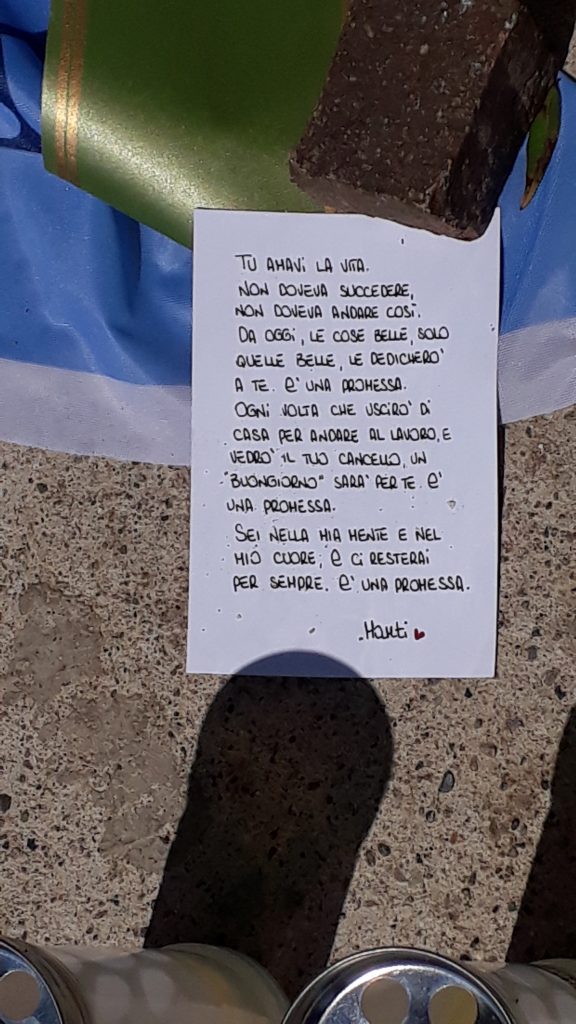 TU AMAVI LA VITA.
NON DOVEVA SUCCEDERE,
NON DOVEVA ANDARE COSÌ.
DA OGGI, LE COSE BELLE, SOLO
QUELLE BELLE, LE DEDICHERO'
A TE. E' UNA PROMESSA.
OGNI VOLTA CHE USCIRO' DI
CASA PER ANDARE AL LAVORO, E
VEDRO' IL TUO CANCELLO, UN
"BUONGIORNO" SARA' PER TE. E'
UNA PROMESSA.
SEI NELLA MIA MENTE E NEL
MIO CUORE, E CI RESTERAI
PER SEMPRE. E' UNA PROMESSA.
Marti